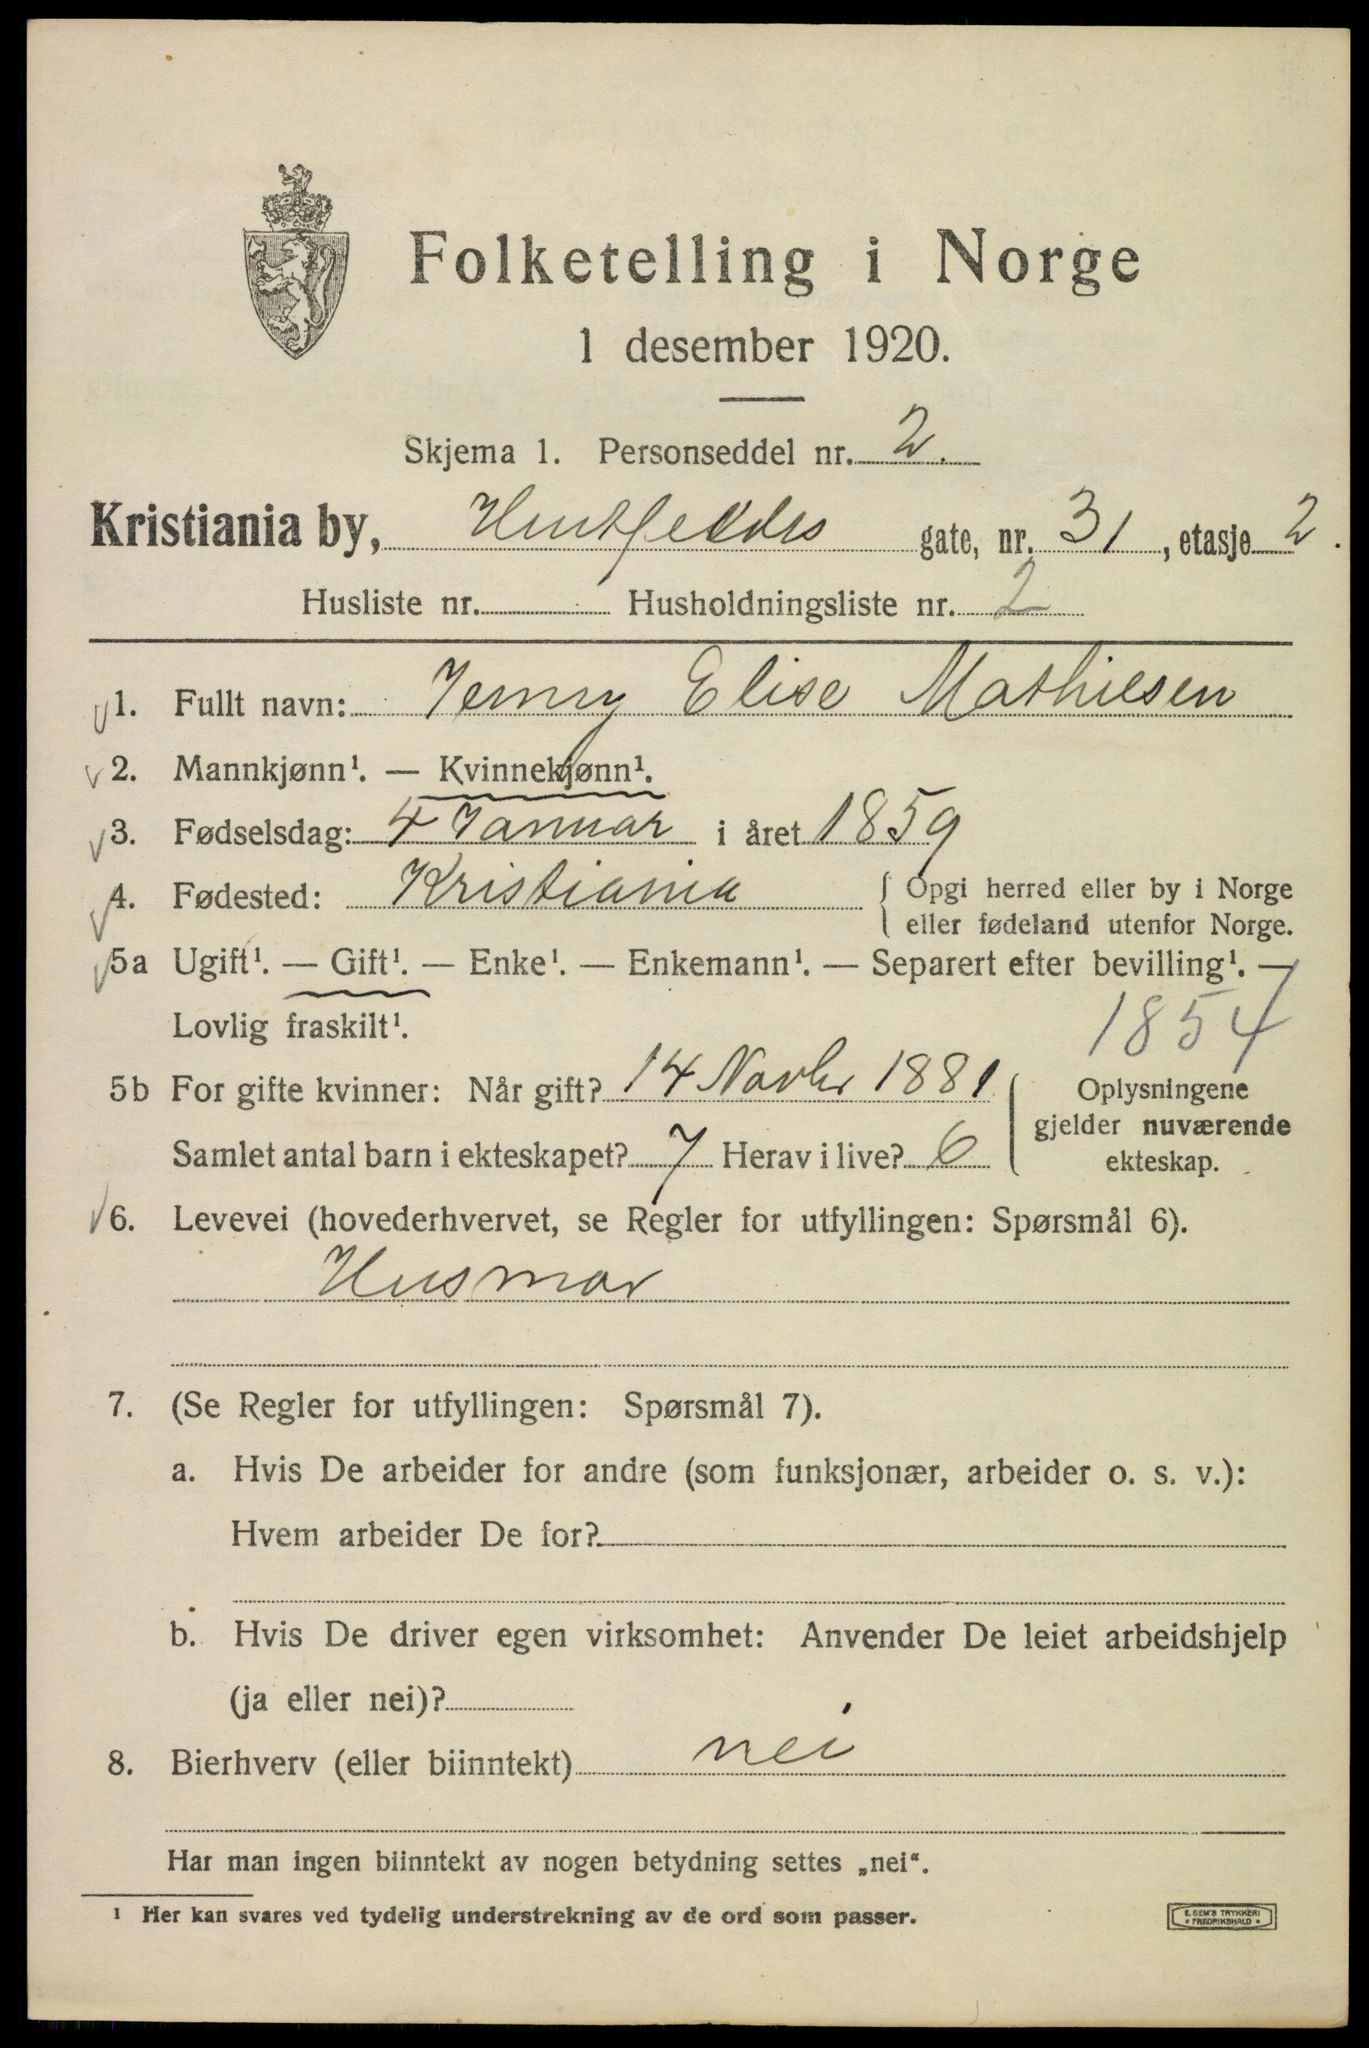 Folketelling i Norge
1 desember 1920.
Skjema 1. Personseddel nr. 2.
Kristiania by, Huitfeldts gate, nr. 31, etasje 2.
Husliste nr. Husholdningsliste nr. 2
1. Fullt navn: Jenny Elise Mathiesen
2. Mannkjønn¹. — Kvinnekjønn¹.
3. Fødselsdag: 4 Januar i året 1859
4. Fødested: Kristiania { Opgi herred eller by i Norge
eller fødeland utenfor Norge.
5a Ugift¹. — Gift¹. — Enke¹. — Enkemann¹. — Separert efter bevilling¹. —
Lovlig fraskilt¹. 1854
5b For gifte kvinner: Når gift? 14 Novbr 1881 Oplysningene
gjelder nuværende
Samlet antal barn i ekteskapet? 7 Herav i live? 6 ekteskap.
6. Levevei (hovederhvervet, se Regler for utfyllingen: Spørsmål 6).
Husmor
7. (Se Regler for utfyllingen: Spørsmål 7).
a. Hvis De arbeider for andre (som funksjonær, arbeider o. s. v.):
Hvem arbeider De for?
b. Hvis De driver egen virksomhet: Anvender De leiet arbeidshjelp
(ja eller nei)?
8. Bierhverv (eller biinntekt) nei
Har man ingen biinntekt av nogen betydning settes „nei“.
¹ Her kan svares ved tydelig understrekning av de ord som passer.
E. SEM'S TRYKKERI
FREDRIKSHALD